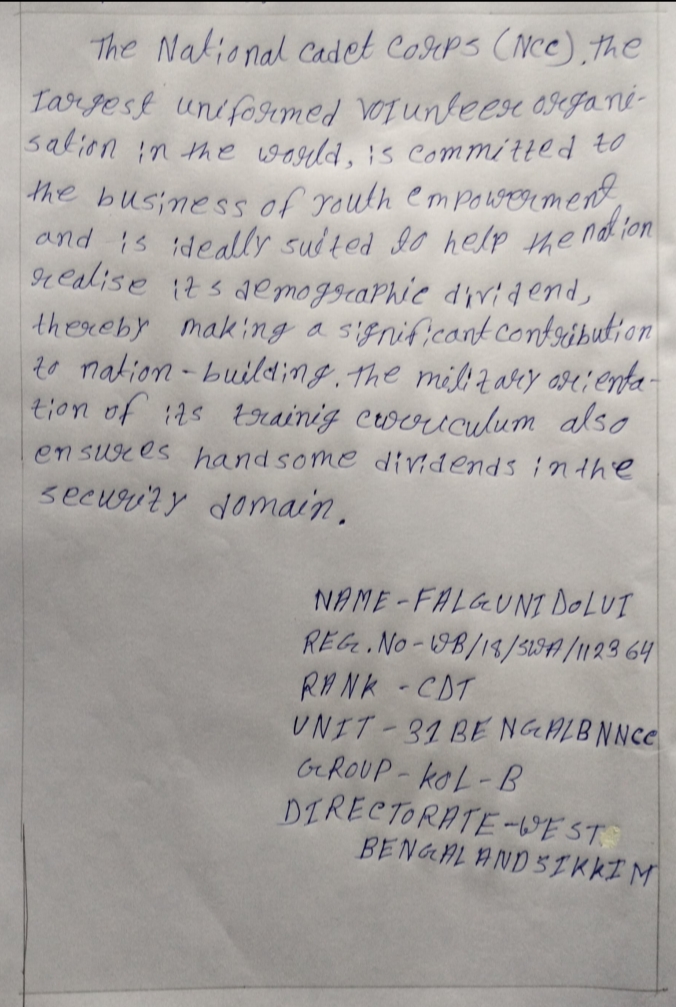 The National Cadet Corps (NCC), the
largest uniformed volunteer organi-
sation in the world, is committed to
the business of youth empowerment
and is ideally suited to help the nation
realise its demographic dividend,
thereby making a significant contribution
to nation-building. The military orienta-
tion of its trainig curriculum also
ensures handsome dividends in the
security domain.
NAME-FALGUNI DOLUI
REG.NO-WB/18/SWA/112364
RANK - CDT
UNIT-31 BENGAL BN NCC
GROUP-KOL-B
DIRECTORATE-WEST
BENGAL AND SIKKIM